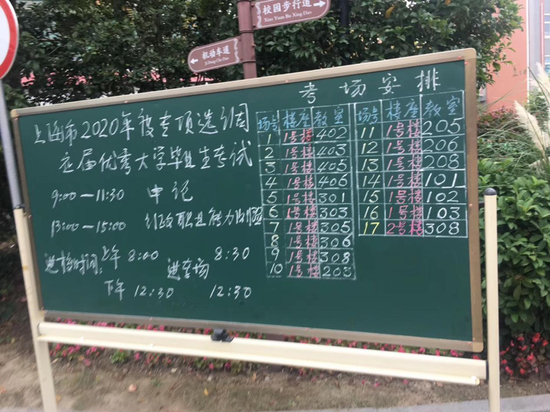 校园步行道
Xiao Yuan Bu Xing Dao
机动车道
Ji Dong Che Dao
上海市2020年度专项选调
应届优秀大学毕业生考试
9:00—11:30 申论
13:00—15:00 行政职业能力测验
进校时间:上午 8:00 进考场 8:30
下午 12:30 12:30
考场安排
场号 楼座 教室 场号 楼座 教室
1 1号楼 402 11 1号楼 205
2 1号楼 403 12 1号楼 206
3 1号楼 405 13 1号楼 208
4 1号楼 406 14 1号楼 101
5 1号楼 301 15 1号楼 102
6 1号楼 303 16 1号楼 103
7 1号楼 305 17 2号楼 308
8 1号楼 306
9 1号楼 308
10 1号楼 203